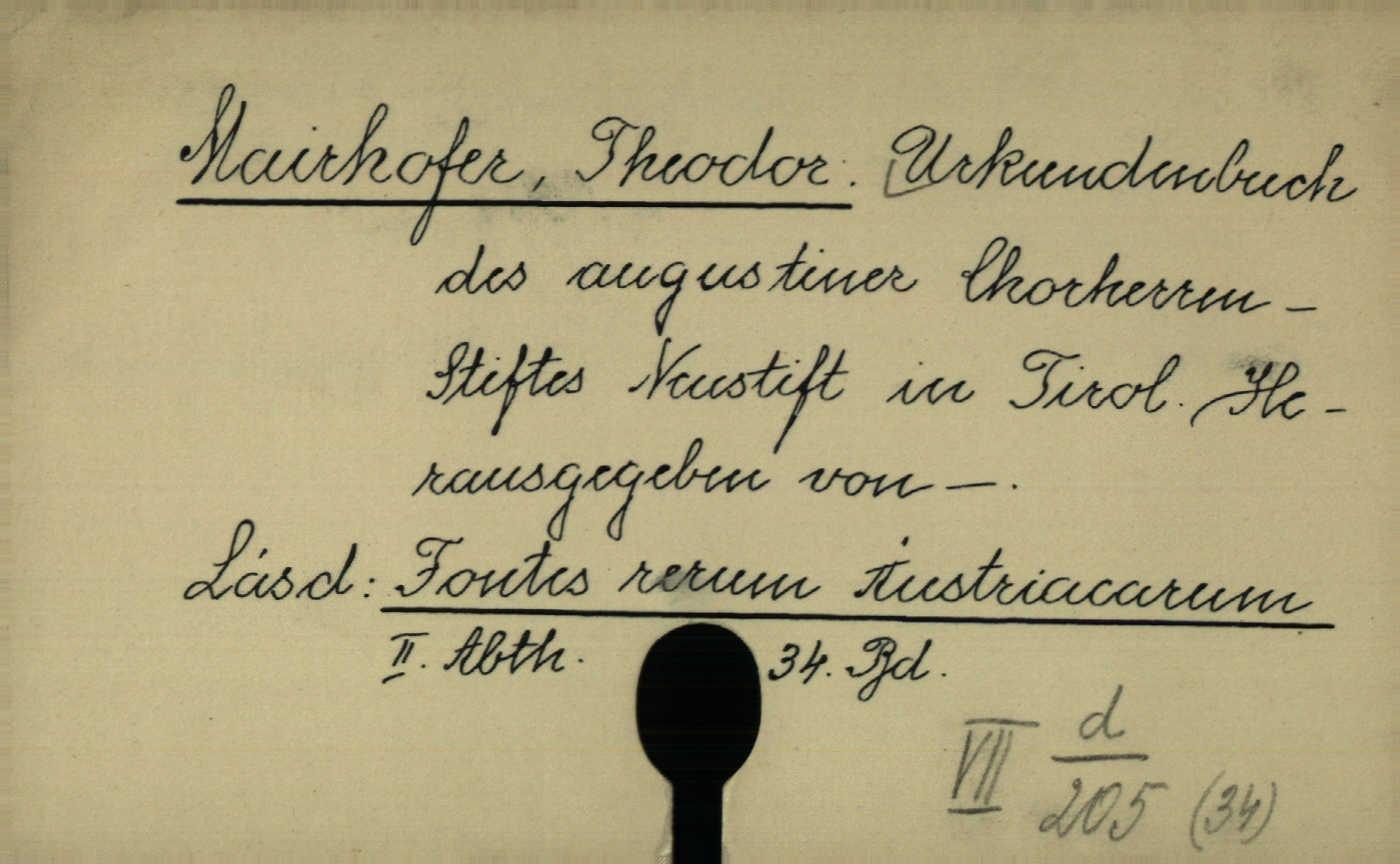 Mairhofer, Theodor. Urkundenbuch
des augustiner Chorherren-
Stiftes Neustift in Tirol. He-
rausgegeben von —.
Lásd: Fontes rerum Austriacarum
II. Abth. 34. Bd.
VII d/205 (34)